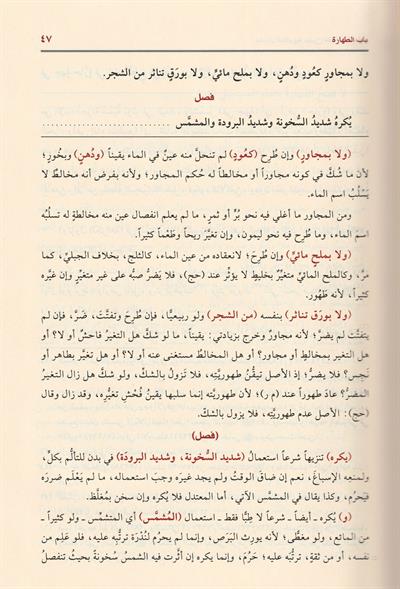 باب الطهارة ٤٧
ولا بمجاورٍ كعُودٍ ودُهنٍ، ولا بملح مائيٍّ، ولا بورَقٍ تناثر من الشجر.
فصل
يُكرهُ شديدُ السُّخونة وشديدُ البرودة والمشمَّس
(ولا بمجاورٍ) وإن طُرِح (كعُودٍ) لم تنحلَّ منه عينٌ في الماء يقيناً (ودُهنٍ) وبخُورٍ؛
لأن ما شُكَّ في كونه مجاوراً أو مخالطاً له حُكم المجاور؛ ولأنه بفرض أنه مخالطٌ لا
يَسْلُبُ اسم الماء.
ومن المجاور ما أغلي فيه نحو بُرٍّ أو ثمرٍ، ما لم يعلم انفصال عين منه مخالطةٍ له تسلُبُه
اسمَ الماء، وما طُرِح فيه نحو ليمون، وإن تغيَّر ريحاً وطَعْماً كثيراً.
(ولا بملحٍ مائيٍّ) وإن طُرِحَ؛ لانعقاده من عين الماء، كالثلج، بخلاف الجبليِّ، كما
مرَّ، وكالملح المائيِّ متغيِّرٌ بخليطٍ لا يؤثِّر عند (حج)، فلا يَضرُّ صبُّه على غير متغيِّرٍ وإن غيَّره
كثيراً، لأنه طَهُور.
(ولا بورَقٍ تناثر) بنفسه (من الشجر) ولو ربيعيًّا، فإن طُرِحَ وتفتَّت، ضَرَّ، فإن لم
يتفتَّت لم يضرَّ؛ لأنه مجاورٌ وخرج بزيادتي: يقيناً، ما لو شكَّ هل التغيرُ فاحشٌ أو لا؟ أو
هل التغير بمخالطٍ أو مجاور؟ أو هل المخالطُ مستغنى عنه أو لا؟ أو هل تغيَّر بطاهر أو
نَجِس؟ فلا يضرُّ؛ إذ الأصل تيقُّنُ طهوريَّتِه، فلا تَزولُ بالشكِّ، ولو شكَّ هل زال التغيرُ
المضرُّ؟ عادَ طهوراً عند (م ر)؛ لأن طهوريَّته إنما سلبها يقينُ فُحْشِ تغيُّرِه، وقد زال وقال
(حج): الأصل عدم طهوريَّتِه، فلا يزول بالشك.
(فصل)
(يكره) تنزيهاً شرعاً استعمالُ (شديد السُّخونة، وشديد البرودة) في بدن للتألُّم بكلٍّ،
ولمنعِه الإسباغَ، نعم إن ضاق الوقتُ ولم يجد غيرَه وجبَ استعماله، ما لم يَعْلَم ضررَه
فيَحرُم، وكذا يقال في المشمَّس الآتي، أما المعتدل فلا يُكره وإن سخن بمُغلَّظ.
(و) يُكره ـ أيضاً ـ شرعاً لا طِبًّا فقط ـ استعمالُ (المُشَمَّس) أي المتشمِّس ـ ولو كثيراً ـ
من المائع، ولو مغطَّى؛ لأنه يورِث البَرَص، وإنما لم يَحرُم لنُدْرَة ترتُّبِه عليه، فلو عَلِم من
نفسه، أو من ثقةٍ، ترتُّبَه عليه؛ حَرُمَ، وإنما يكره إن أثَّرت فيه الشمسُ سُخونةً بحيث تنفصلُ